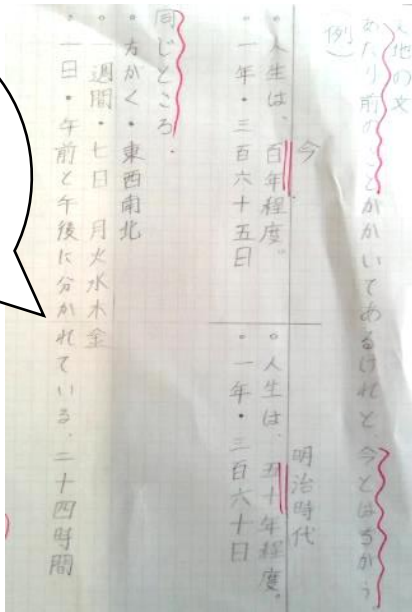 地の文
あたり前のことがかいてあるけれど、今とはちがう
（例）
今
・人生は、百年程度。
・一年・三百六十五日
明治時代
・人生は、五十年程度。
・一年・三百六十日
同じところ
・方がく・東西南北
・一週間・七日 月火水木金
・一日・午前と午後に分かれている、二十四時間